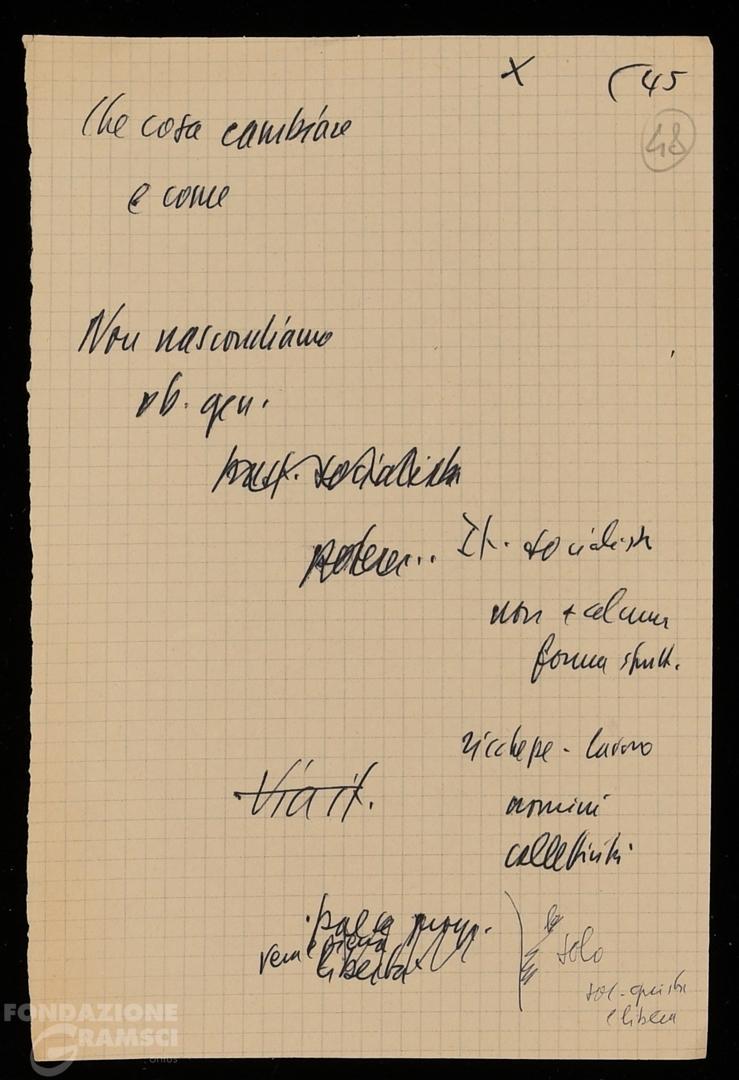 X (45
48
Che cosa cambiare
e come
Non nascondiamo
ob. gen.
socialista
potere.. It. socialista
non + alcuna
forma sfrutt.
ricchezze - lavoro
uomini
collettività
Via it.
pace prog.
vera e piena
libertà
solo
soc. giusta
e libera
FONDAZIONE
GRAMSCI
onlus